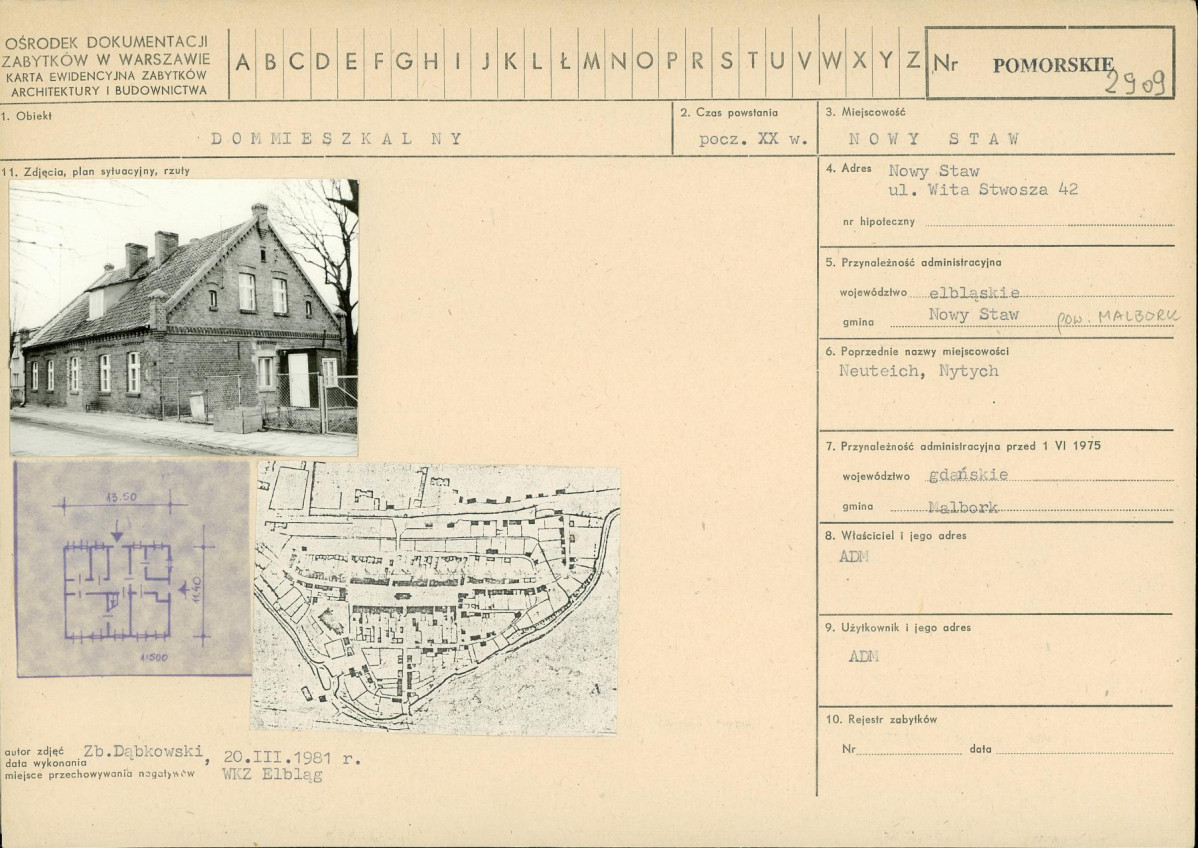 OŚRODEK DOKUMENTACJI
ZABYTKÓW W WARSZAWIE
KARTA EWIDENCYJNA ZABYTKÓW
ARCHITEKTURY I BUDOWNICTWA
A B C D E F G H I J K L Ł M N O P R S T U V W X Y Z
Nr POMORSKIE
2909
1. Obiekt
D O M M I E S Z K A L N Y
2. Czas powstania
pocz. XX w.
3. Miejscowość
N O W Y S T A W
11. Zdjęcia, plan sytuacyjny, rzuty
4. Adres Nowy Staw
ul. Wita Stwosza 42
nr hipoteczny
5. Przynależność administracyjna
województwo elbląskie
gmina Nowy Staw pow. MALBORK
6. Poprzednie nazwy miejscowości
Neuteich, Nytych
7. Przynależność administracyjna przed 1 VI 1975
województwo gdańskie
gmina Malbork
8. Właściciel i jego adres
ADM
9. Użytkownik i jego adres
ADM
10. Rejestr zabytków
Nr data
13.50
11.40
1:500
autor zdjęć Zb.Dąbkowski, 20.III.1981 r.
data wykonania
miejsce przechowywania negatywów WKZ Elbląg